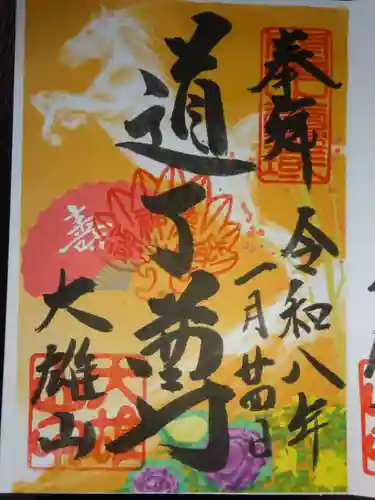 奉拝
令和八年
一月廿四日
道了尊
大雄山
喜